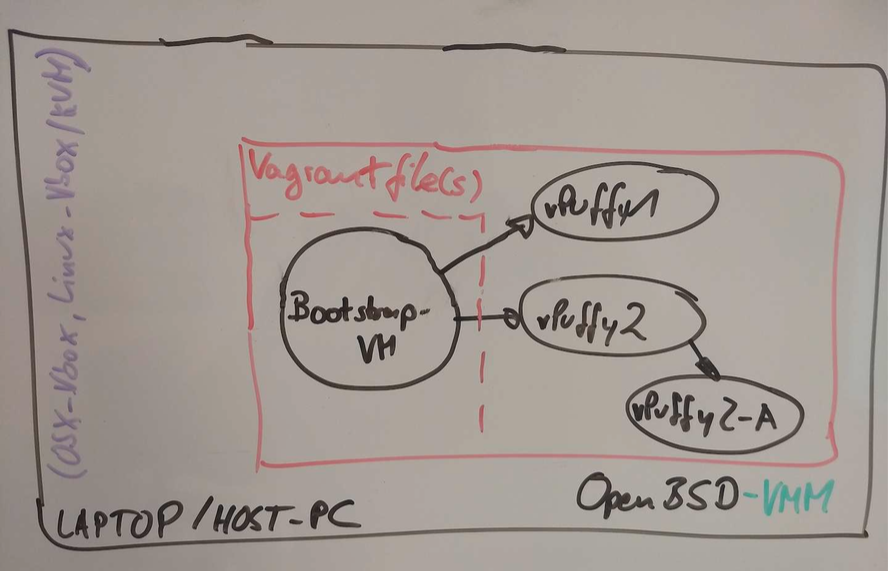 (OSX-Vbox, Linux-Vbox/KVM)
Vagrantfile(s)
vPuffy1
Bootstrap-
VM
vPuffy2
vPuffy2-A
OpenBSD-VMM
LAPTOP/HOST-PC